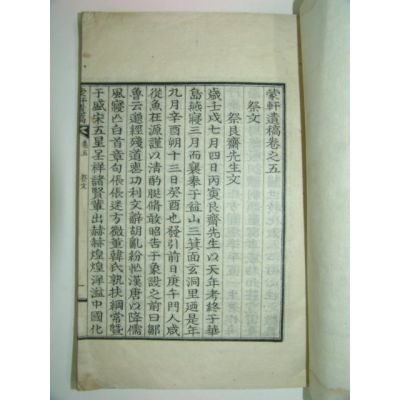 蒙軒遺稿卷之五
祭文
祭艮齋先生文
歲壬戌七月四日丙寅艮齋先生以天年考終于華
島寢三月而襄奉于益山三箕面玄洞里是年
九月辛酉朔十三日癸酉也發引前日庚午門人咸
從魚在源謹以清酌脡脩敢昭告于象設之前曰鄒
魯云邈經殘道喪功利文辭胡亂紛紜漢唐以降
風寢亡白首章句倀倀迷方微董韓氏孰扶綱常暨
于盛宋五星呈祥諸賢輩出赫赫煌煌洋溢中國化
蒙軒遺稿
卷五
祭文
一